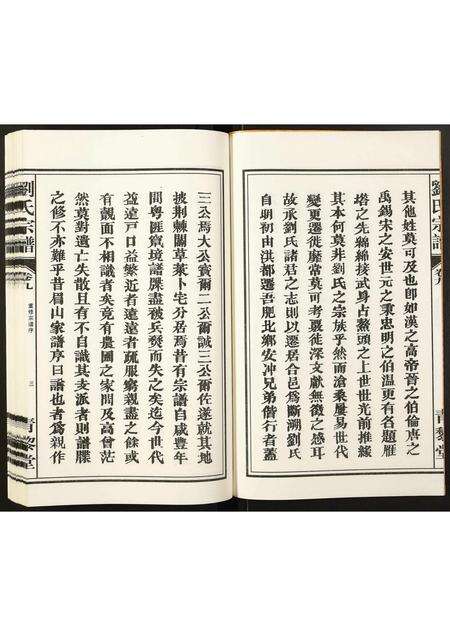 劉氏宗譜 卷九
青黎堂
其他姓莫可及也卽如漢之高帝晉之伯倫唐之
禹錫宋之安世元之秉忠明之伯溫更有各題雁
塔之先綿綿接武身占鰲頭之上世世光前推緣
其本何莫非劉氏之宗族乎然而滄桑屢易世代
變更遷徙靡常莫可考覈徒深文獻無徵之感耳
故承劉氏諸君之志則以遷居合邑爲斷溯劉氏
自明初由洪都遷吾肥北鄉安冲兄弟偕行者蓋
三公焉大公賓爾二公爾誠三公爾佐遂就其地
披荆棘闢草萊卜宅分居焉昔有宗譜自咸豊年
間粵匪竄境譜牒盡被兵燹而失之矣迄今世代
益遠戸口益繁近者遠遠者疏服窮親盡之餘或
有覿面不相識者矣竟有農國之家問及高曾茫
然莫對遺亡失散且有不自識其支派者則譜牒
之修不亦難乎昔眉山家譜序曰譜也者爲親作
劉氏宗譜 卷九
重修宗譜序
三
青黎堂